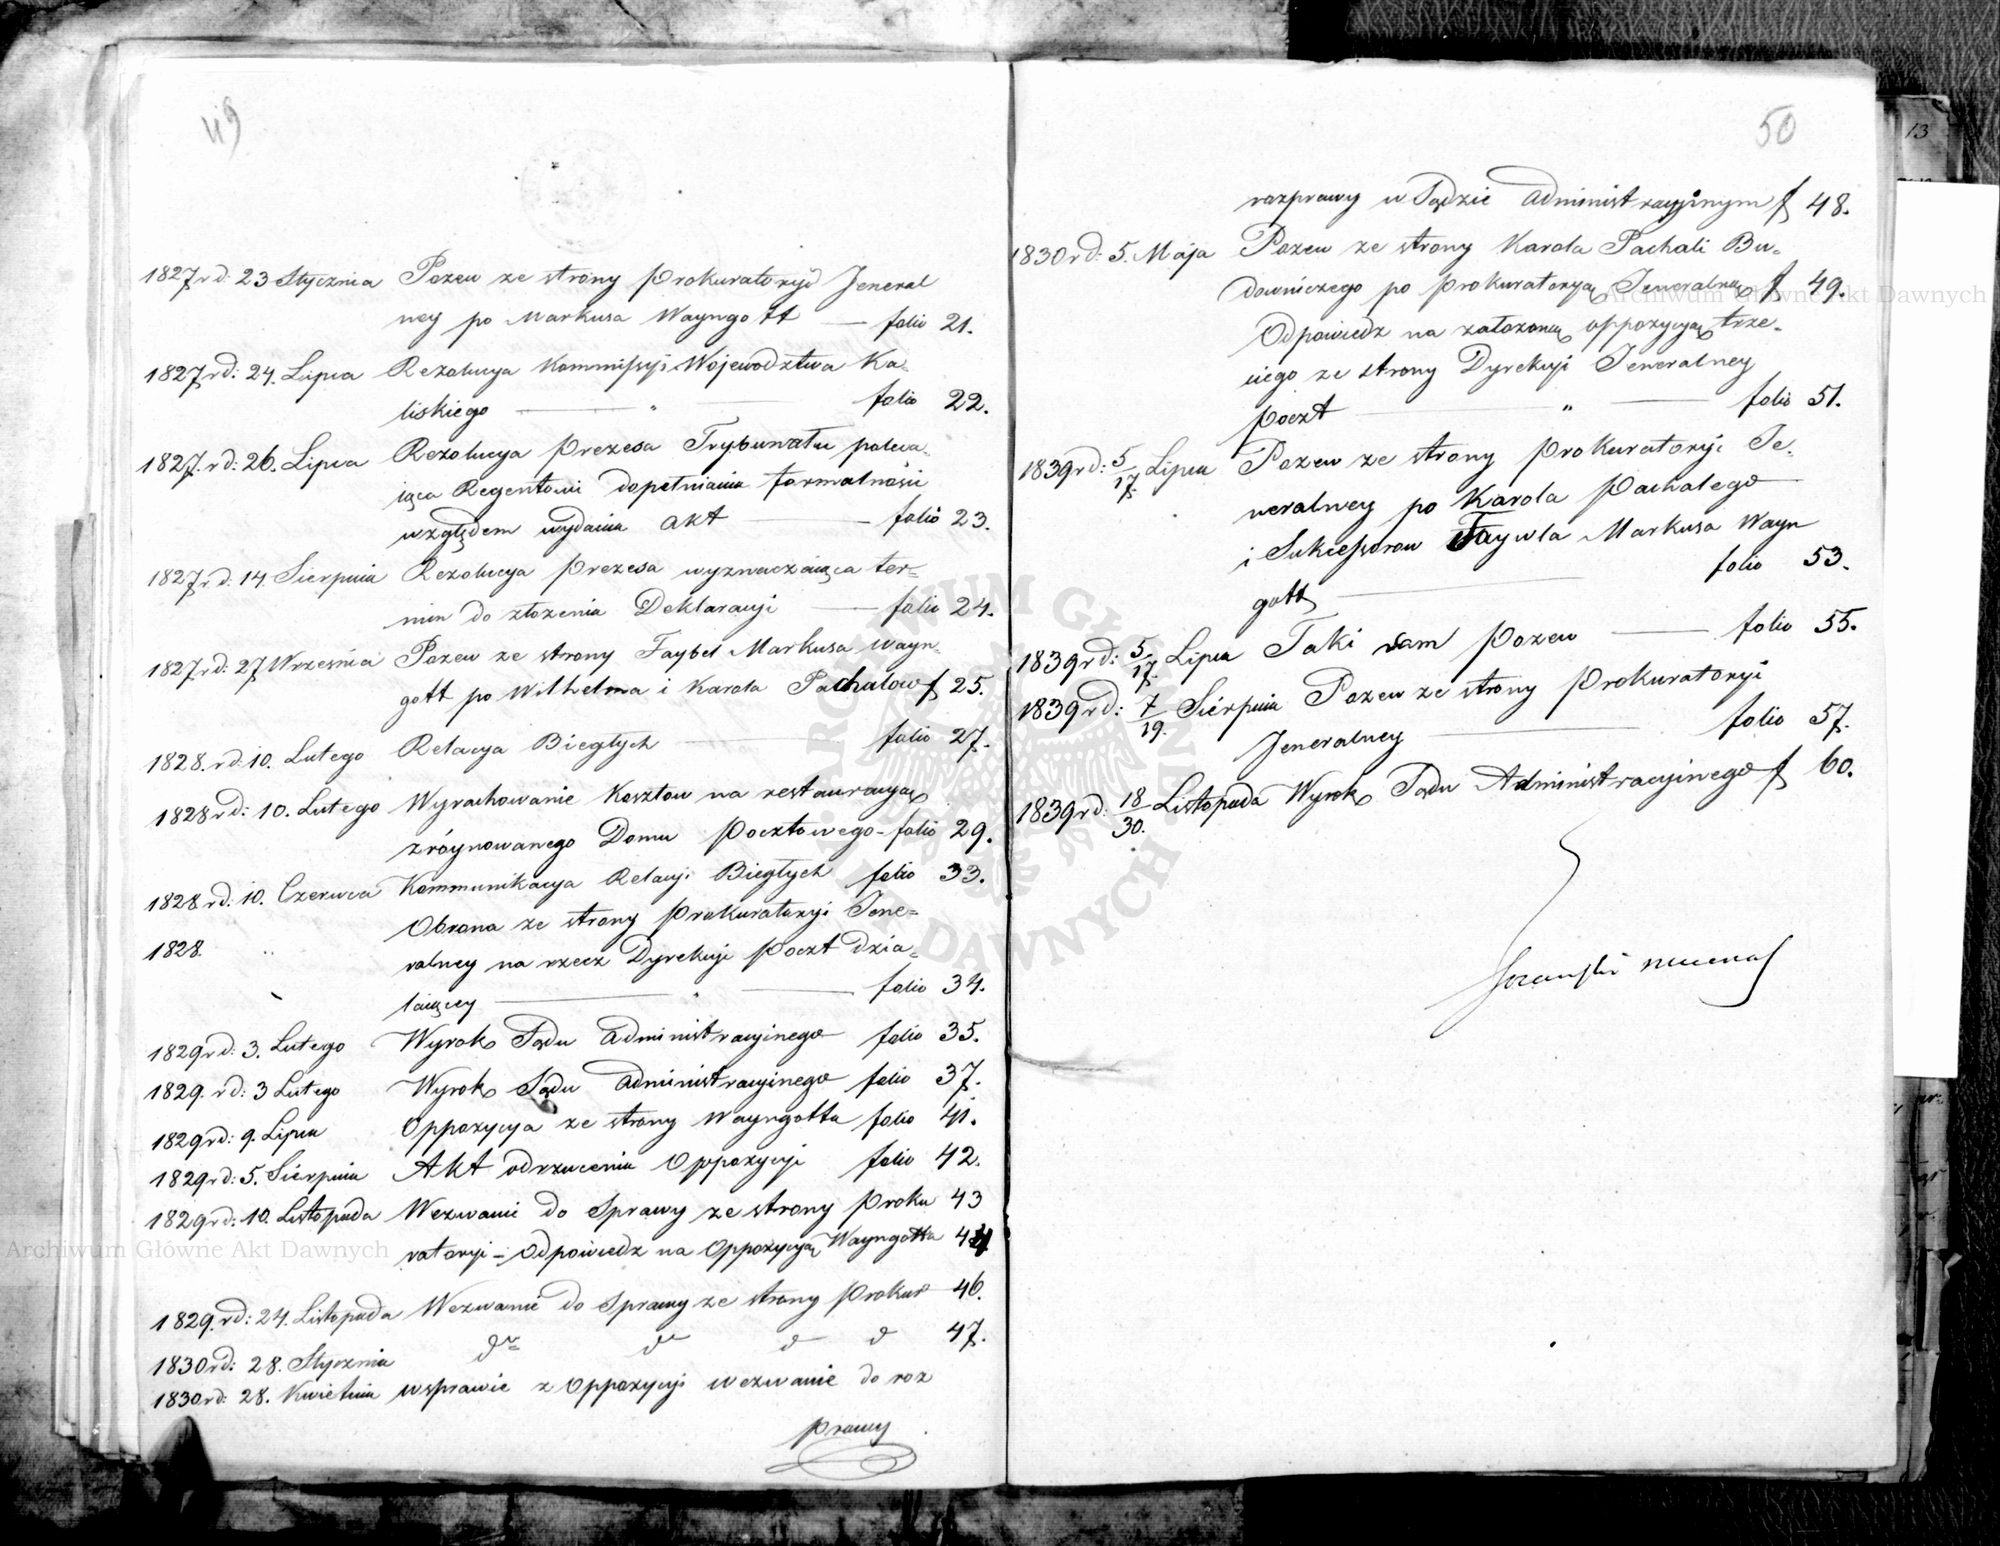 49
1827 r d: 23 Stycznia Pozew ze strony Prokuratoryi Jeneral
ney po Markusa Wayngott — folio 21.
1827 r d: 24. Lipca Rezolucya Kommissyi Wojewodztwa Ka-
liskiego — " — folio 22.
1827. r d: 26. Lipca Rezolucya Prezesa Trybunału poleca-
iąca Regentowi dopełnienia formalności
względem wydania Akt — folio 23.
1827 r d: 14. Sierpnia Rezolucya Prezesa wyznaczaiąca ter-
min do złożenia Deklaracyi — folio 24.
1827 r d: 27 Września Pozew ze strony Faybel Markusa Wayn-
gott po Wilhelma i Karola Pachalow f 25.
1828. r d: 10. Lutego Relacya Biegłych — folio 27.
1828 r d: 10. Lutego Wyrachowanie Kosztow na restauracyą
zróynowanego Domu Pocztowego - folio 29.
1828 r d: 10. Czerwca Kommunikacya Relacyi Biegłych folio 33.
1828. " Obrona ze strony Prokuratoryi Jene-
ralney na rzecz Dyrekcyi Poczt dzia-
łaiącey — " — folio 34.
1829 r d: 3. Lutego Wyrok Sądu Administracyinego folio 35.
1829. r d: 3 Lutego Wyrok Sądu Administracyinego folio 37.
1829 r d: 9. Lipca Oppozycya ze strony Wayngotta folio 41.
1829 r d: 5. Sierpnia Akt odrzucenia Oppozycyi folio 42.
1829 r d: 10. Listopada Wezwanie do Sprawy ze strony Proku 43
ratoryi - Odpowiedz na Oppozycyą Wayngotta 44
1829. r d: 24. Listopada Wezwanie do Sprawy ze strony Prokur 46.
1830 r d: 28. Stycznia d° d° d d 47.
1830 r d: 28. Kwietnia w sprawie z Oppozycyi wezwanie do roz
prawy
50
rozprawy w Sądzie Administracyjnym f 48.
1830 r d: 5. Maja Pozew ze strony Karola Pachali Bu-
downiczego po Prokuratoryą Jeneralną f 49.
Odpowiedz na założoną oppozycyą trze-
ciego ze strony Dyrekcyi Jeneralney
Poczt — " — folio 51.
1839 r d: 5/17. Lipca Pozew ze strony Prokuratoryi Je-
neralney po Karola Pachalego
i Sukcessorow Faywla Markusa Wayn
gott — folio 53.
1839 r d: 5/17. Lipca Taki sam Pozew — folio 55.
1839 r d: 7/19. Sierpnia Pozew ze strony Prokuratoryi
Jeneralney — folio 57.
1839 r d: 18/30. Listopada Wyrok Sądu Administracyinego f 60.
13
Archiwum Główne Akt Dawnych
Archiwum Główne Akt Dawnych
ARCHIWUM GŁÓWNE AKT DAWNYCH